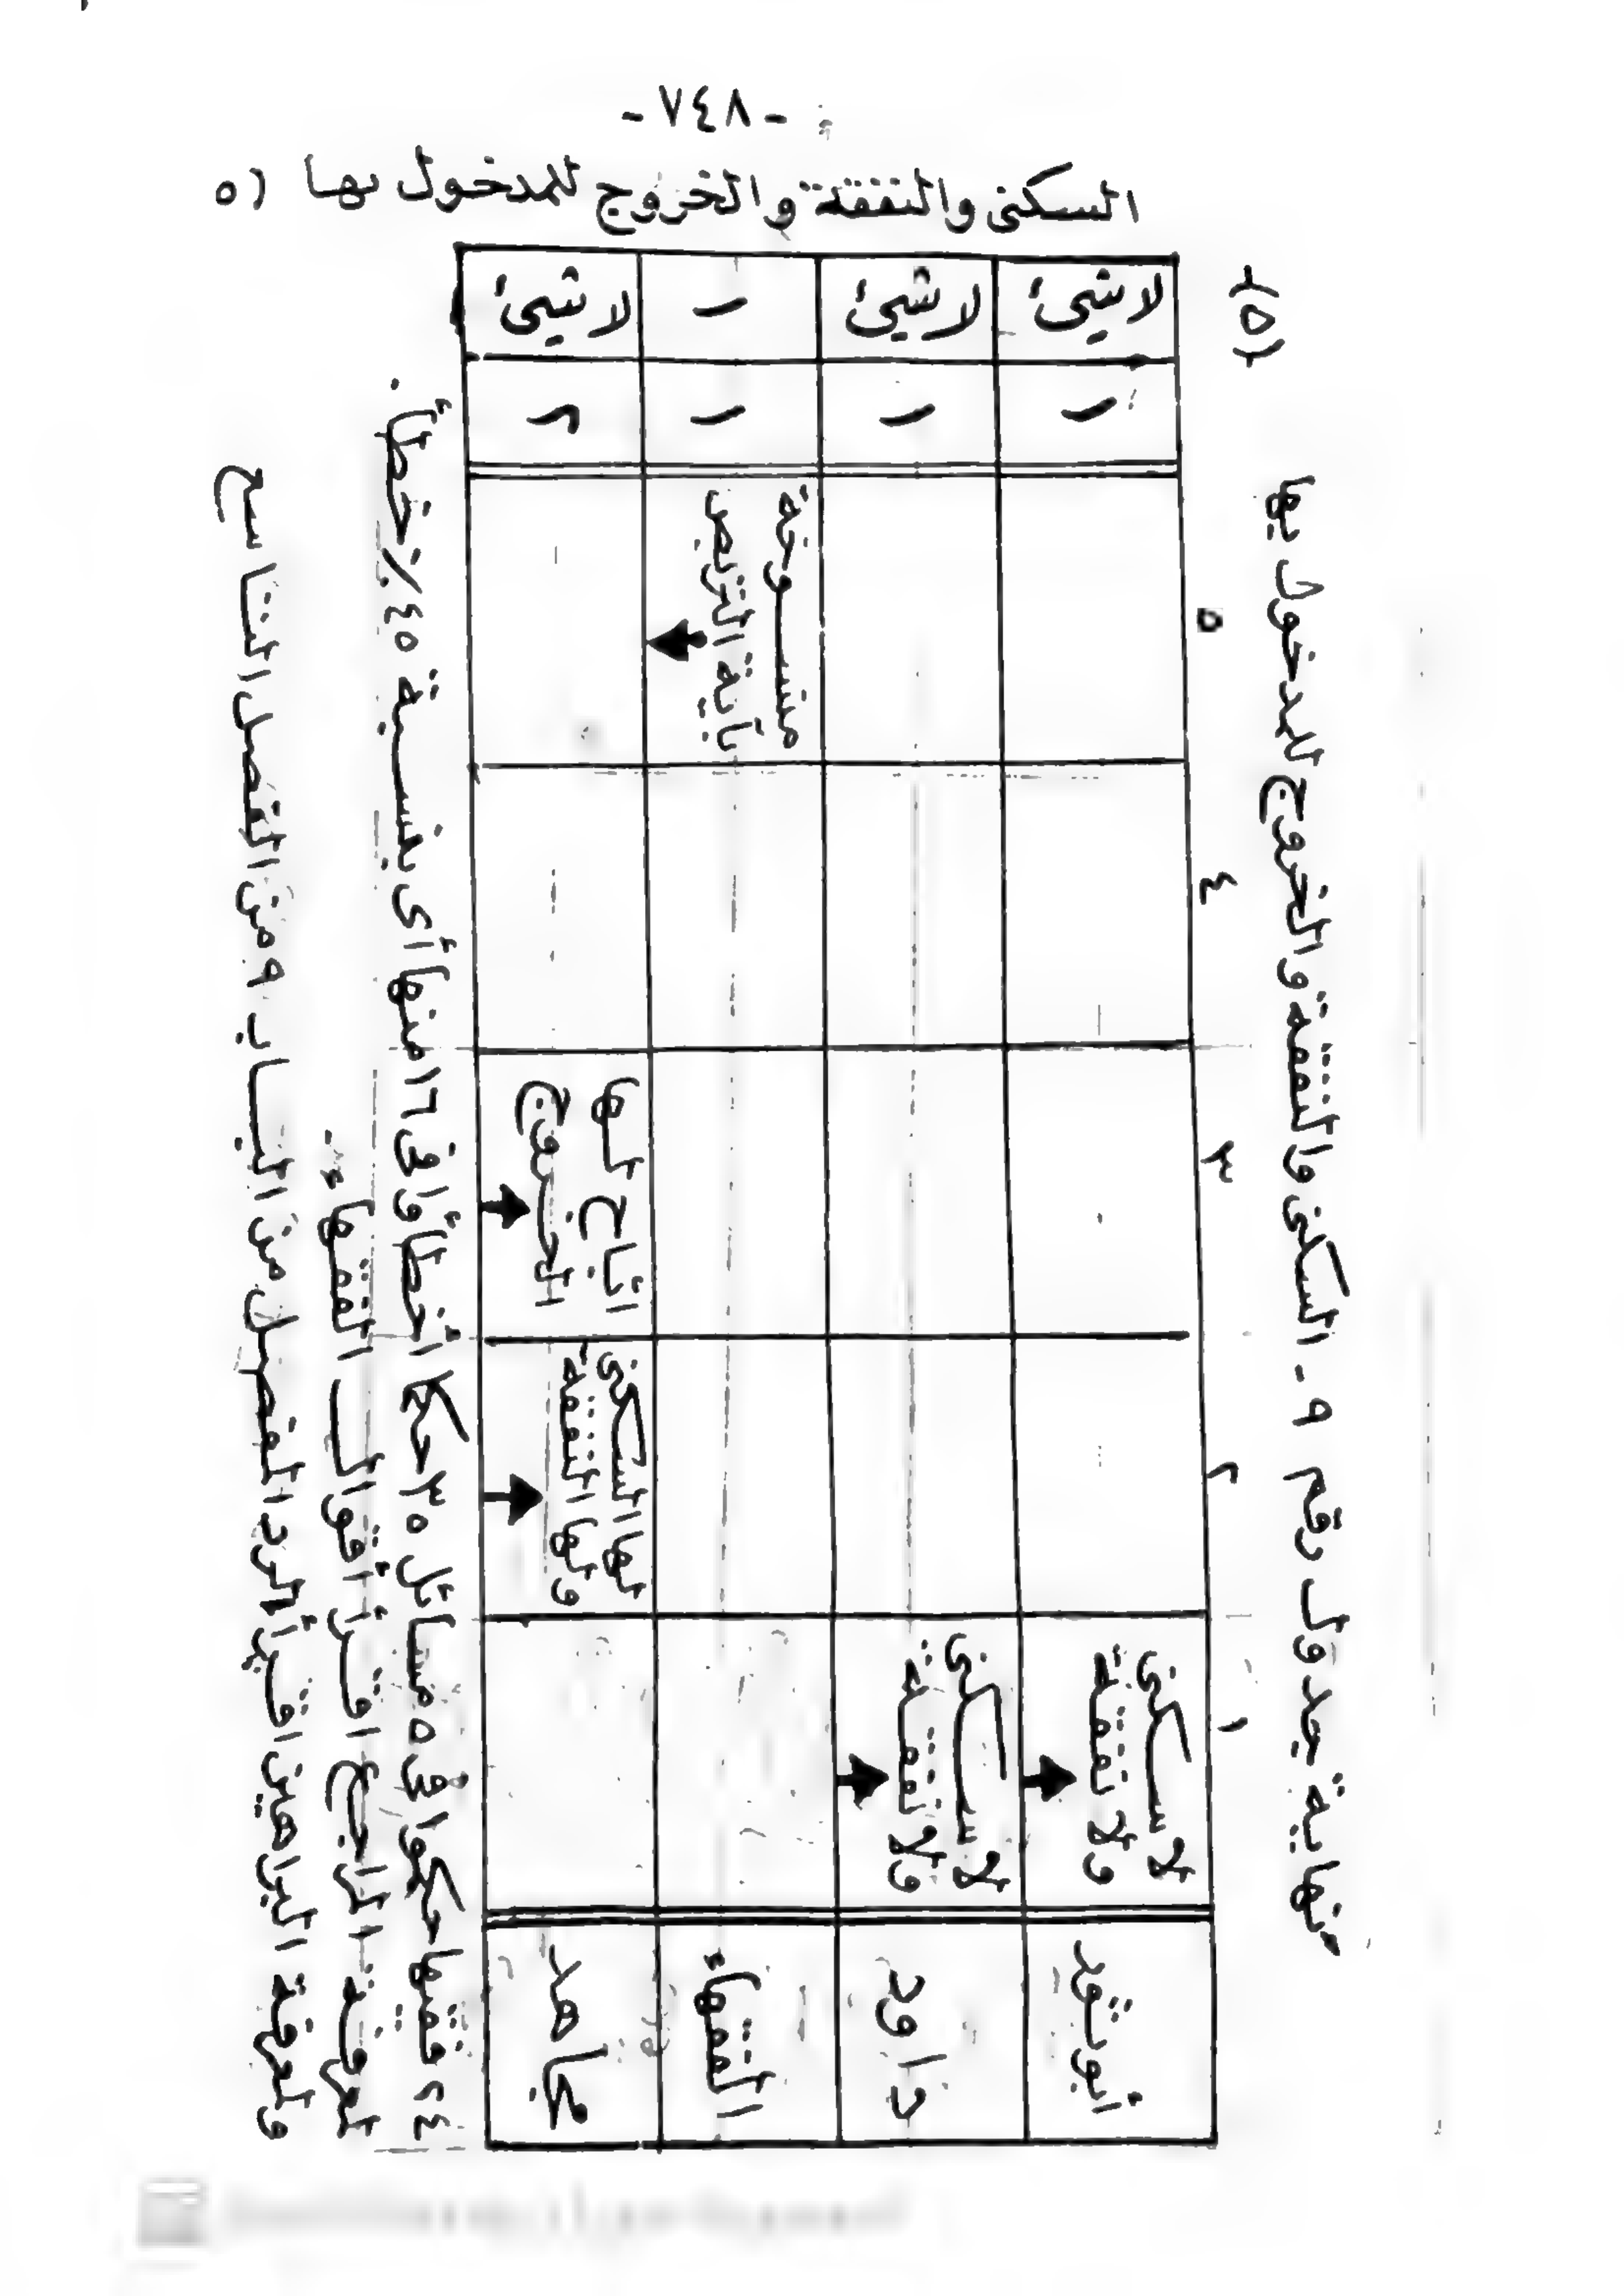 - ٧٤٨ -
السكنى والنفقة والخروج للمدخول بها (٥
نهاية جدول رقم ٩ - السكنى والنفقة والخروج للمدخول بها
(٥)
١ ٢ ٣ ٤ ٥
أبو ثور لا سكنى ولا نفقة ١ لا شيئ
داود لا سكنى ولا نفقة ١ لا شيئ
الفقهاء منسوخة بآية التربص ١ ١
مجاهد لها السكنى ولها النفقة اتباح لها الخروج ٢ لا شيئ
٢٤ فقيها حكموا فى ٥ مسائل ٣٥ حكما أخطأوا فى ١٦ منها أى بنسبة ٤٥٪ خطأ.
لمعرفة المراجع اقرأ أقوال الفقهاء.
ولمعرفة البراهين اقرأ الرد المفصل من الباب ٩ من الفصل التاسع